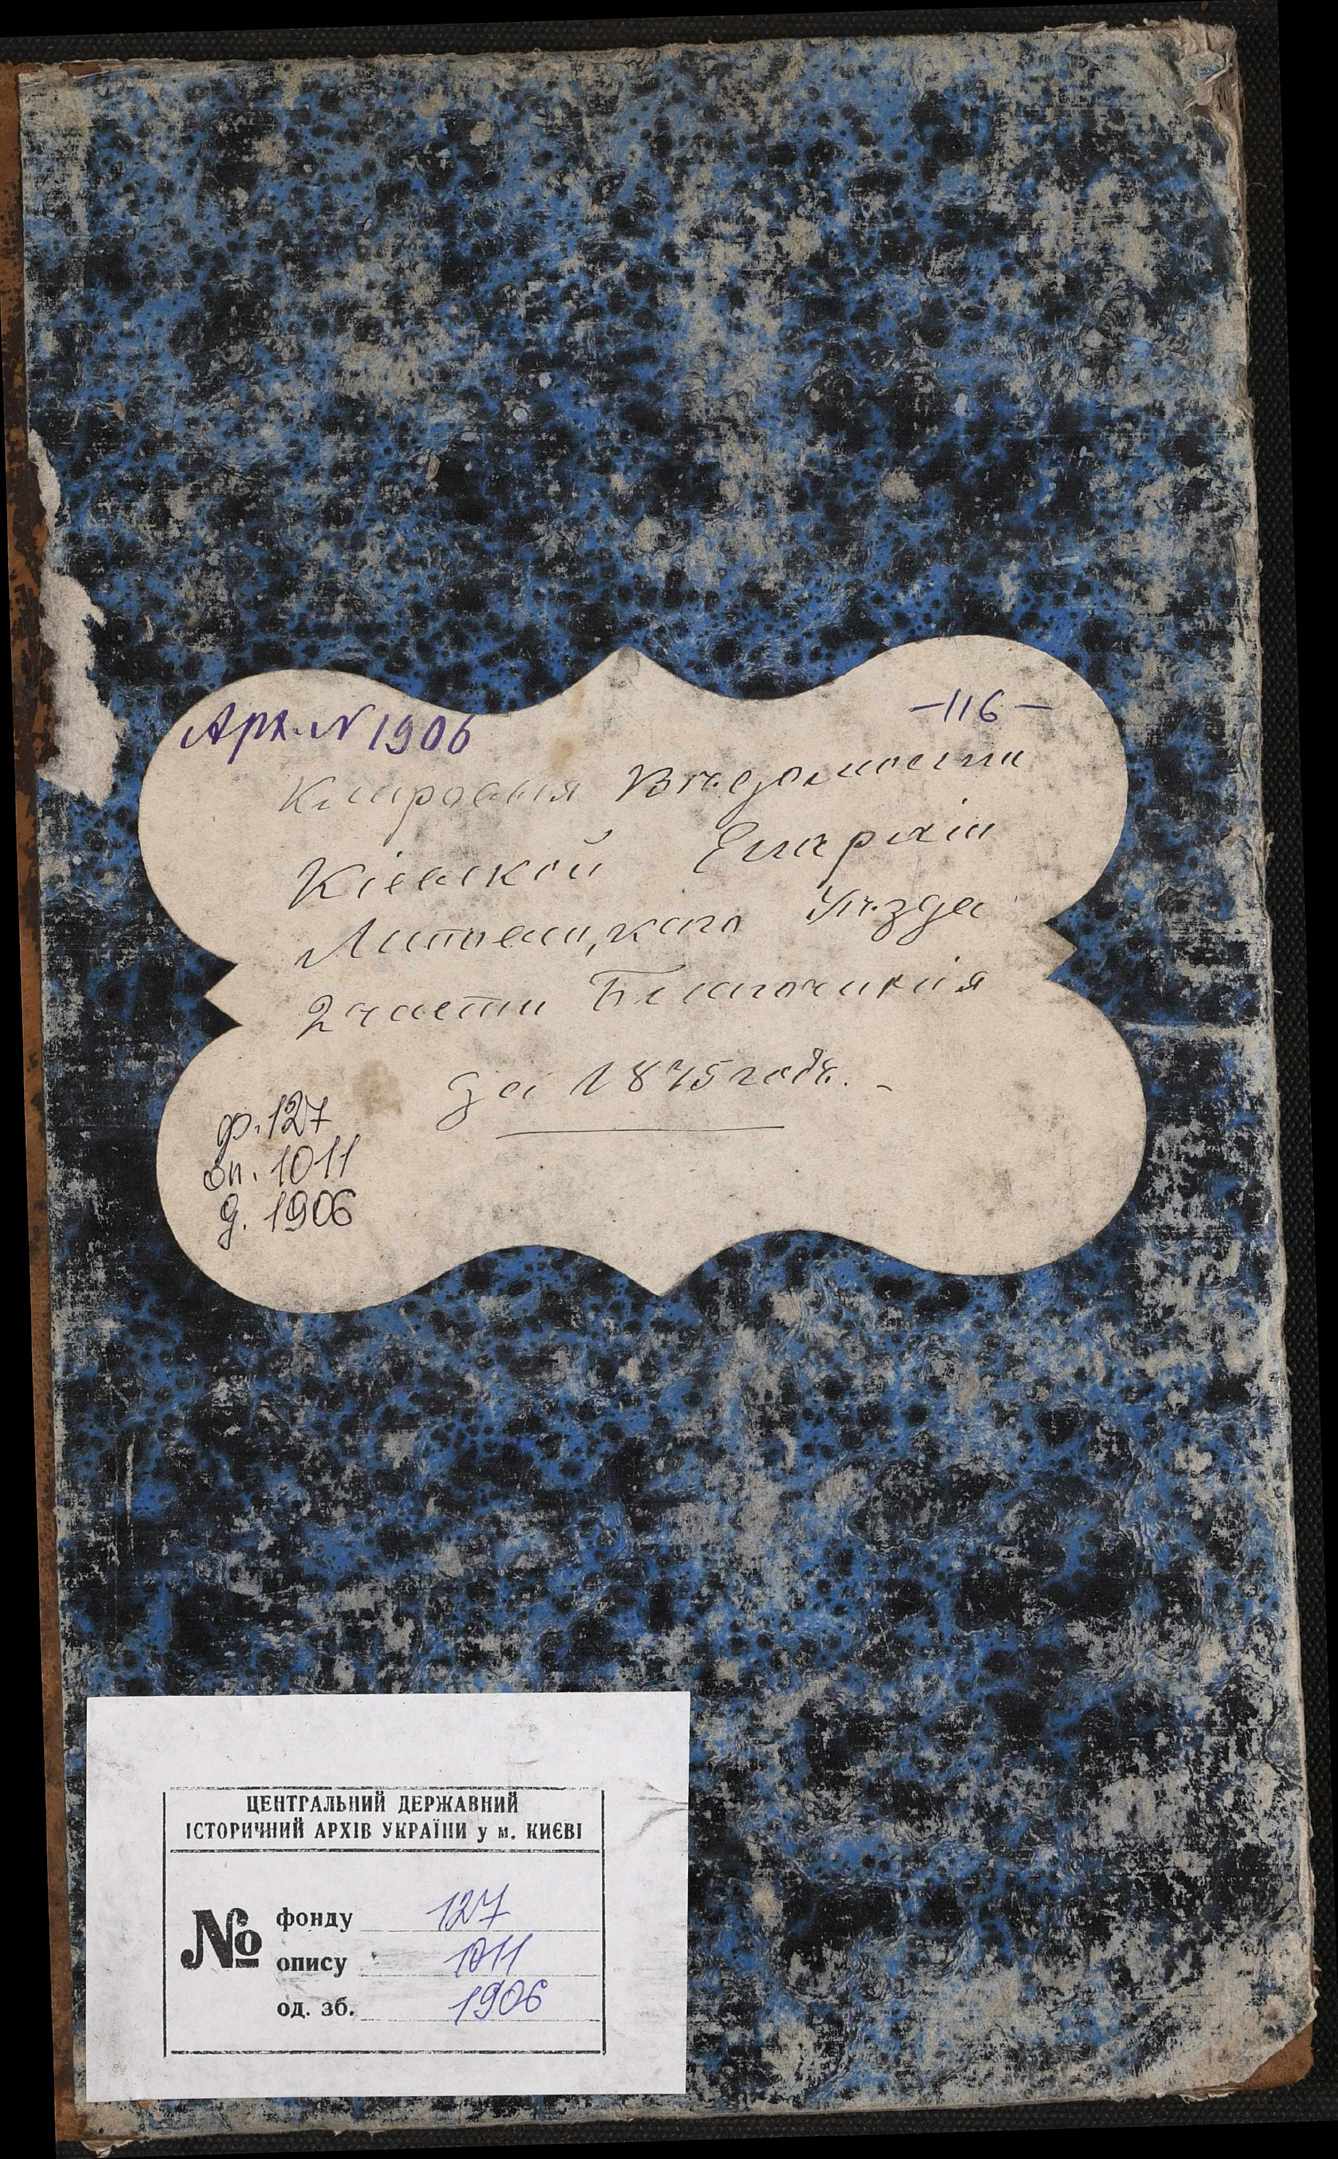 Арх. № 1906
-116-
Клировыя Вѣдомости
Кіевской Епархіи
Липовецкаго Уѣзда
2 части Благочинія
за 1875 годъ. -
ф. 127
оп. 1011
д. 1906
ЦЕНТРАЛЬНИЙ ДЕРЖАВНИЙ
ІСТОРИЧНИЙ АРХІВ УКРАЇНИ у м. КИЄВІ
№ фонду 127
опису 1011
од. зб. 1906